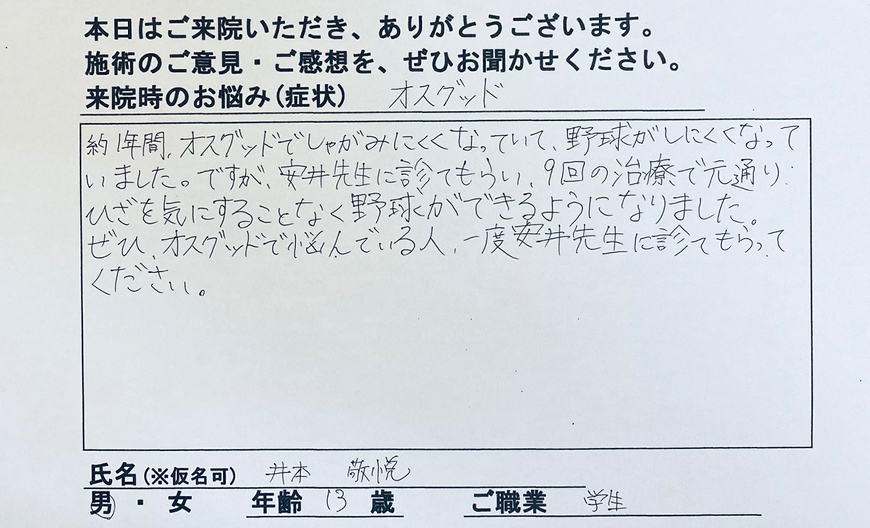 本日はご来院いただき、ありがとうございます。
施術のご意見・ご感想を、ぜひお聞かせください。
来院時のお悩み(症状) オスグッド
約1年間、オスグッドでしゃがみにくくなっていて、野球がしにくくなって
いました。ですが、安井先生に診てもらい、9回の治療で元通り
ひざを気にすることなく野球ができるようになりました。
ぜひ、オスグッドで悩んでいる人、一度安井先生に診てもらって
ください。
氏名(※仮名可) 井本 敬悦
男・女 年齢 13 歳 ご職業 学生